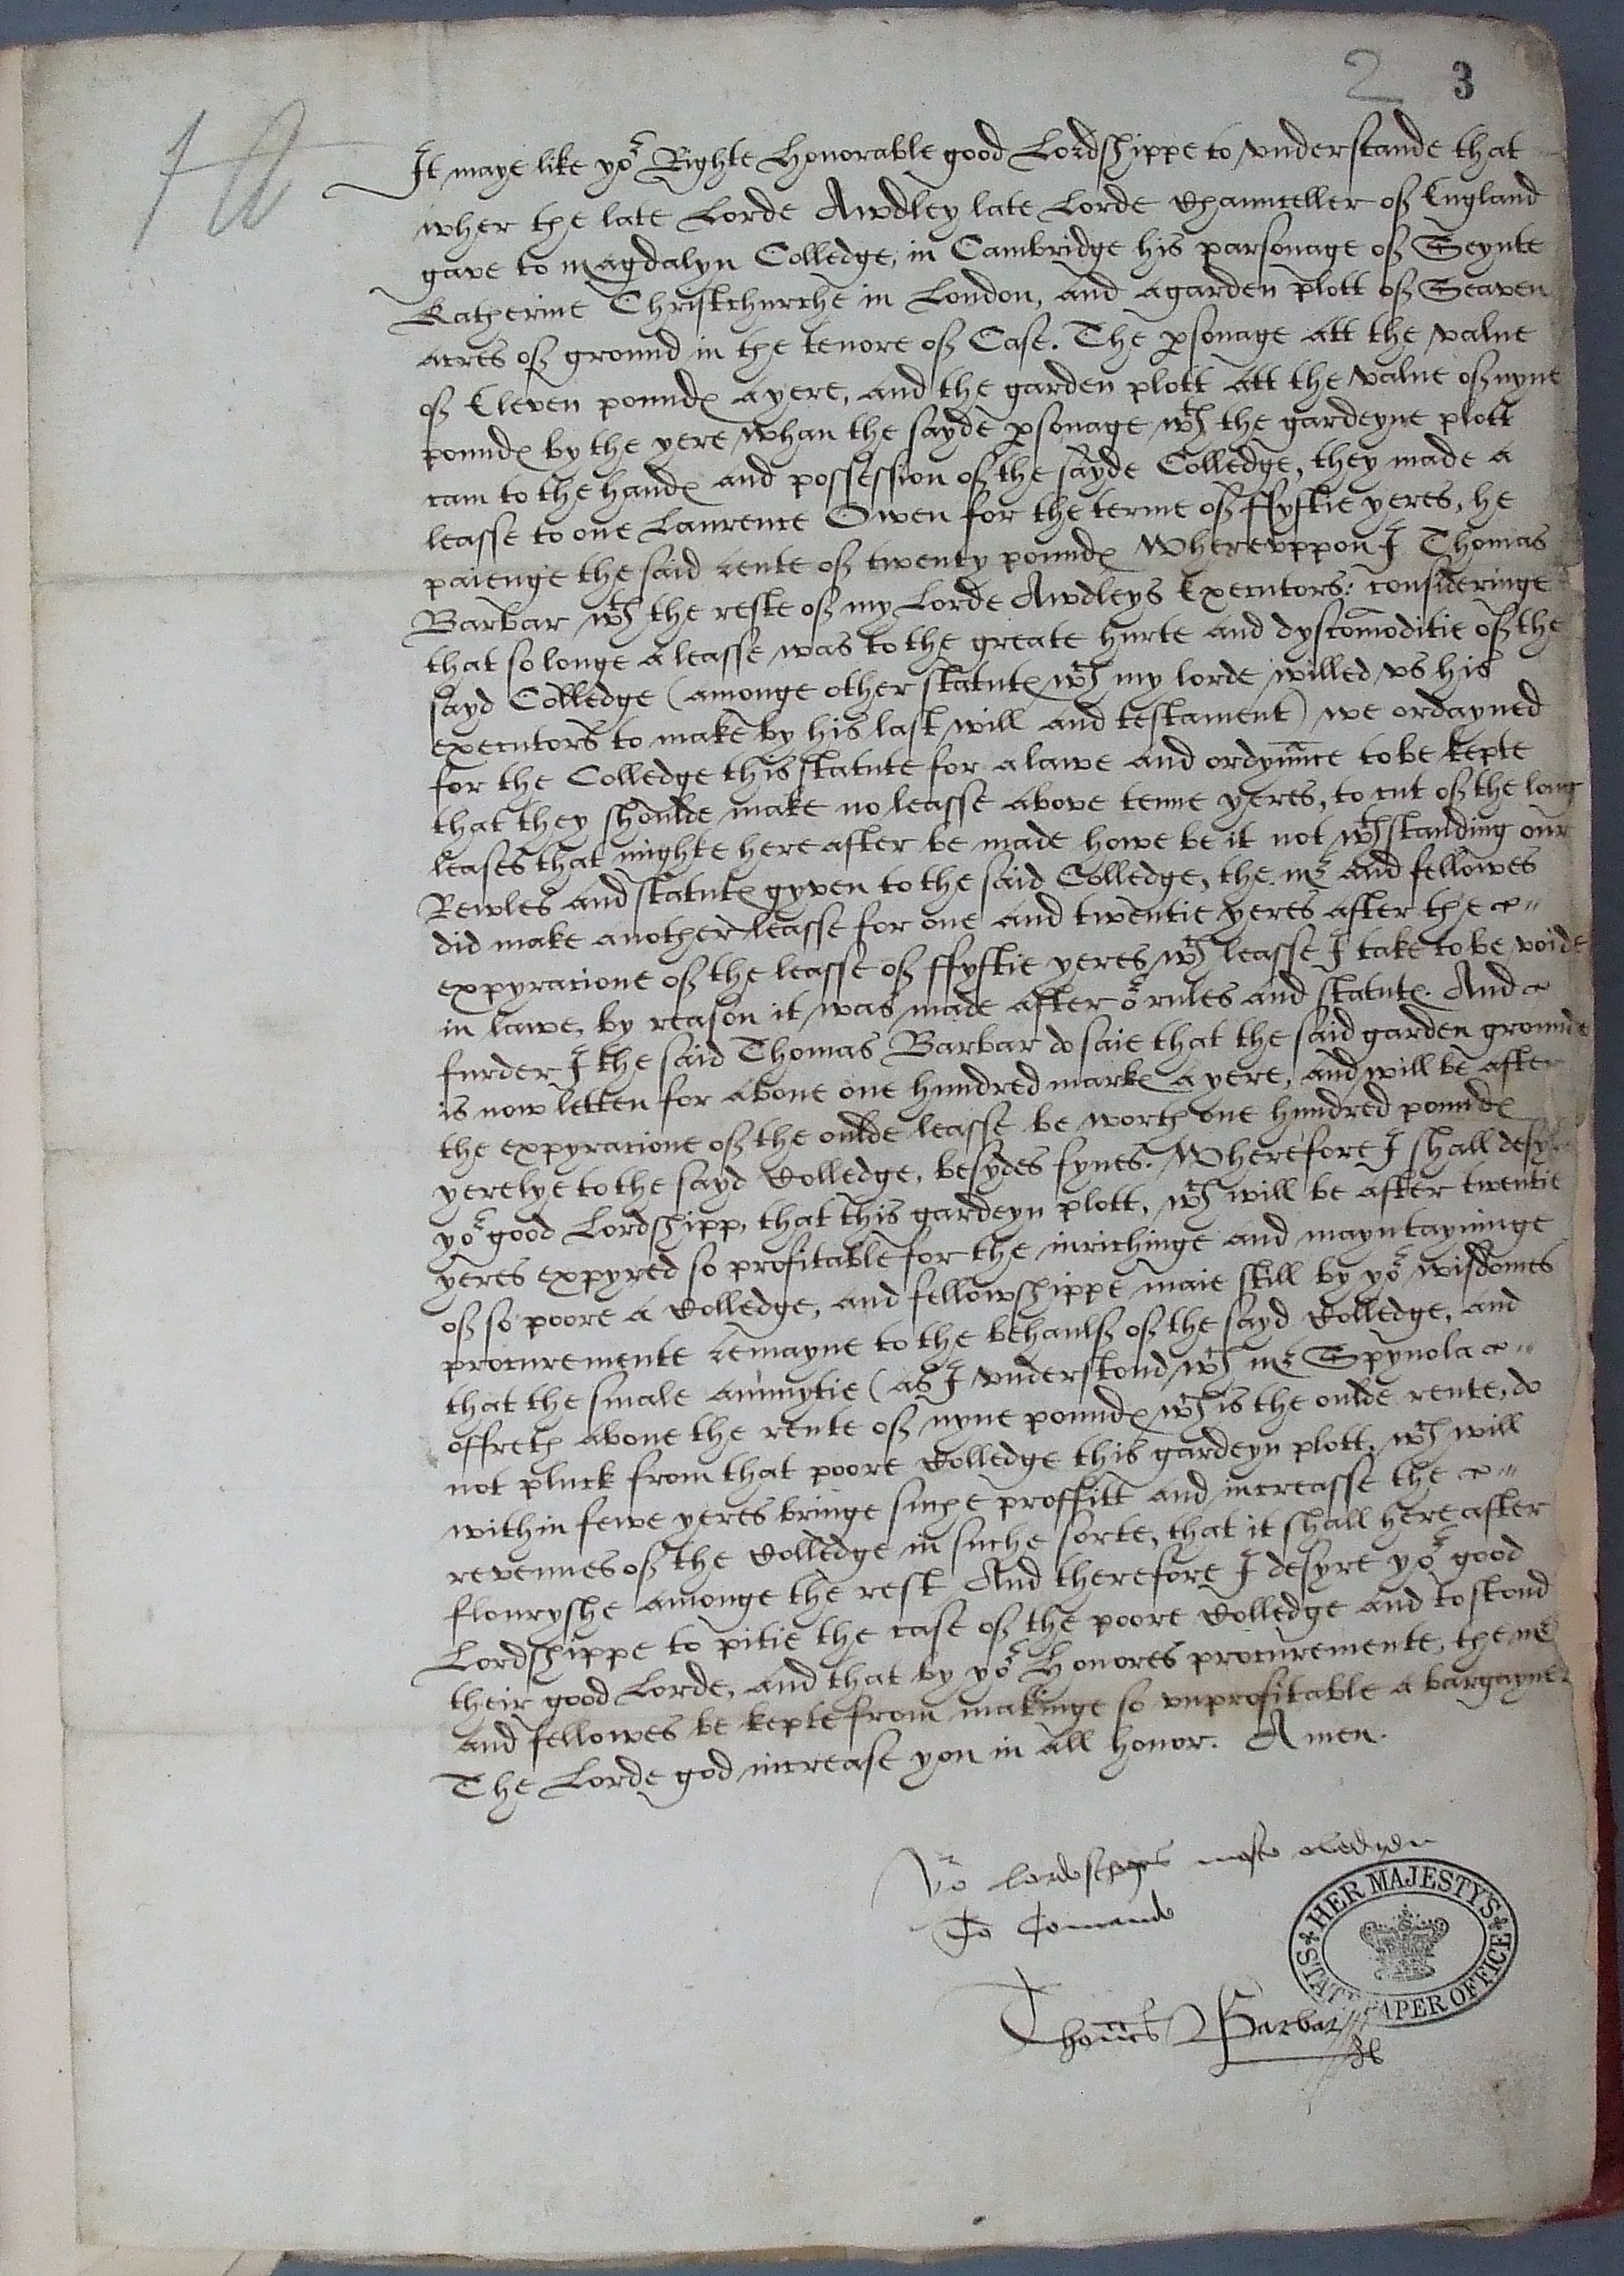 2 3
It maye like yor Righte Honorable good Lordshippe to vnderstande that
wher the late Lorde Awdley late Lorde Chaunceller of England
gave to Magdalyn Colledge, in Cambridge his parsonage of Seynte
Katherine Christchurche in London, and a garden plott of Seaven
acres of ground in the tenore of Case. The psonage att the value
of Eleven pounds a yere, and the garden plott att the value of nyne
pounds by the yere whan the sayde psonage wth the gardeyne plott
cam to the hands and possession of the sayde Colledge, they made a
leasse to one Laurence Owen for the terme of ffyftie yeres, he
paienge the said rente of twenty pounds Wherevppon I Thomas
Barbar wth the reste of my Lorde Awdleys Executors: consideringe
that so longe a leasse was to the greate hurte and dyscomoditie of the
sayd Colledge (amonge other statuts wch my lorde willed vs his
executors to make by his last will and testament) we ordayned
for the Colledge this statute for a lawe and ordynnce to be kepte
that they shoulde make no leasse above tenne yeres, to cut of the long
leases that mighte here after be made howe be it not wthstanding our
Rewles and statuts gyven to the said Colledge, the mr and fellowes
did make another leasse for one and twentie yeres after the
expyracione of the leasse of ffyftie yeres wch leasse I take to be voide
in lawe, by reason it was made after or rules and statuts. And
furder I the said Thomas Barbar do saie that the said garden grounde
is now letten for aboue one hundred marks a yere, and will be after
the expyracione of the oulde leasse be worth one hundred pounds
yerelye to the sayd Colledge, besydes fynes. Wherefore I shall desyre
yor good Lordshipp, that this gardeyn plott, wch will be after twentie
yeres expyred so profitable for the inrichinge and mayntayninge
of so poore a Colledge, and fellowshippe maie still by yor wisdomes
procuremente remayne to the behaulf of the sayd Colledge, and
that the smale annuytie (as I vnderstond wch mr Spynola
offreth aboue the rente of nyne pounds wch is the oulde rente, do
not pluck from that poore Colledge this gardeyn plott, wch will
within fewe yeres bringe suche proffitt and increasse the
revenues of the Colledge in suche sorte, that it shall here after
flouryshe amonge the rest And therefore I desyre yor good
Lordshippe to pitie the case of the poore Colledge and to stond
their good Lorde, and that by yor Honores procuremente, the mr
and fellowes be kepte from makinge so vnprofitable a bargayne.
The Lorde god increase you in all honor. Amen.
Yor lordschyps
To Comande
Thomas Barbar
HER MAJESTY'S STATE PAPER OFFICE